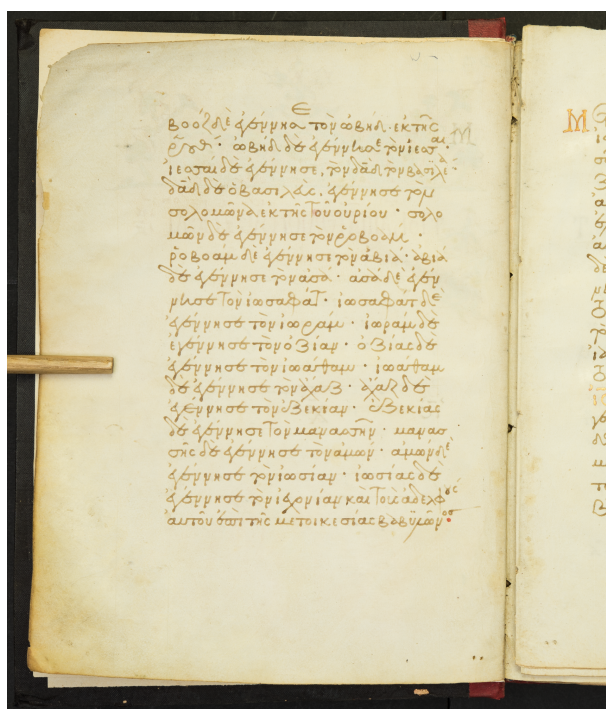 Ε
βοὸζ δὲ ἐγέννησα τὸν ὠβὴδ· ἐκ τῆς
ῥοὺθ· ὠβὴδ δὲ ἐγέννησε τὸν ἰεσσαι
ἰεσσαι δὲ ἐγέννησε, τὸν δαδ τὸν βασιλέα·
δαδ δὲ ὁ βασιλεὺς, ἐγέννησε τὸν
σολομῶνα ἐκ τῆς τοῦ οὐρίου· σολο
μῶν δὲ ἐγέννησε τὸν ῥοβοάμ·
ῥοβοαμ δὲ ἐγέννησε τὸν ἀβιά· ἀβιὰ
δὲ ἐγέννησε τὸν ἀσά· ἀσὰ δὲ ἐγέν
νησε τὸν ἰωσαφάτ· ἰωσαφατ δὲ
ἐγέννησε τὸν ἰωράμ· ἰωρὰμ δὲ
εγέννησε τὸν ὀζίαν· ὀζίας δὲ
ἐγέννησε τὸν ἰωάθαμ· ἰωάθαμ
δὲ ἐγέννησε τὸν ἄχαζ· ἄχαζ δὲ
ἐγέννησε τὸν ἐζεκίαν· ἐζεκίας
δὲ ἐγέννησε τὸν μανασσῆν· μανασ
σῆς δὲ ἐγέννησε τὸν ἀμών· ἀμὼν δὲ
ἐγέννησε τὸν ἰωσίαν· ἰωσίας δὲ
ἐγέννησε τὸν ἰεχονίαν καὶ τοὺς ἀδελφοὺς
αὐτοῦ ἐπὶ τῆς μετοικεσίας βαβυλῶνος
Μ